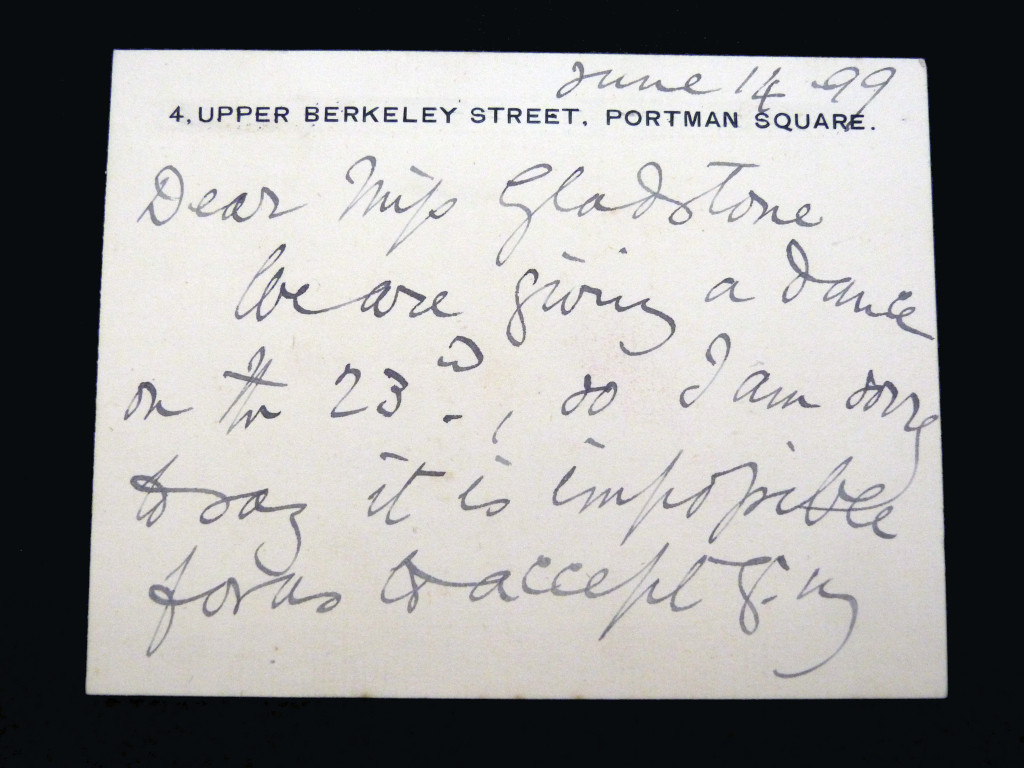 June 14 -99
4, UPPER BERKELEY STREET, PORTMAN SQUARE.
Dear Miss Gladstone
We are giving a dance
on the 23rd, so I am sorry
to say it is impossible
for us to accept